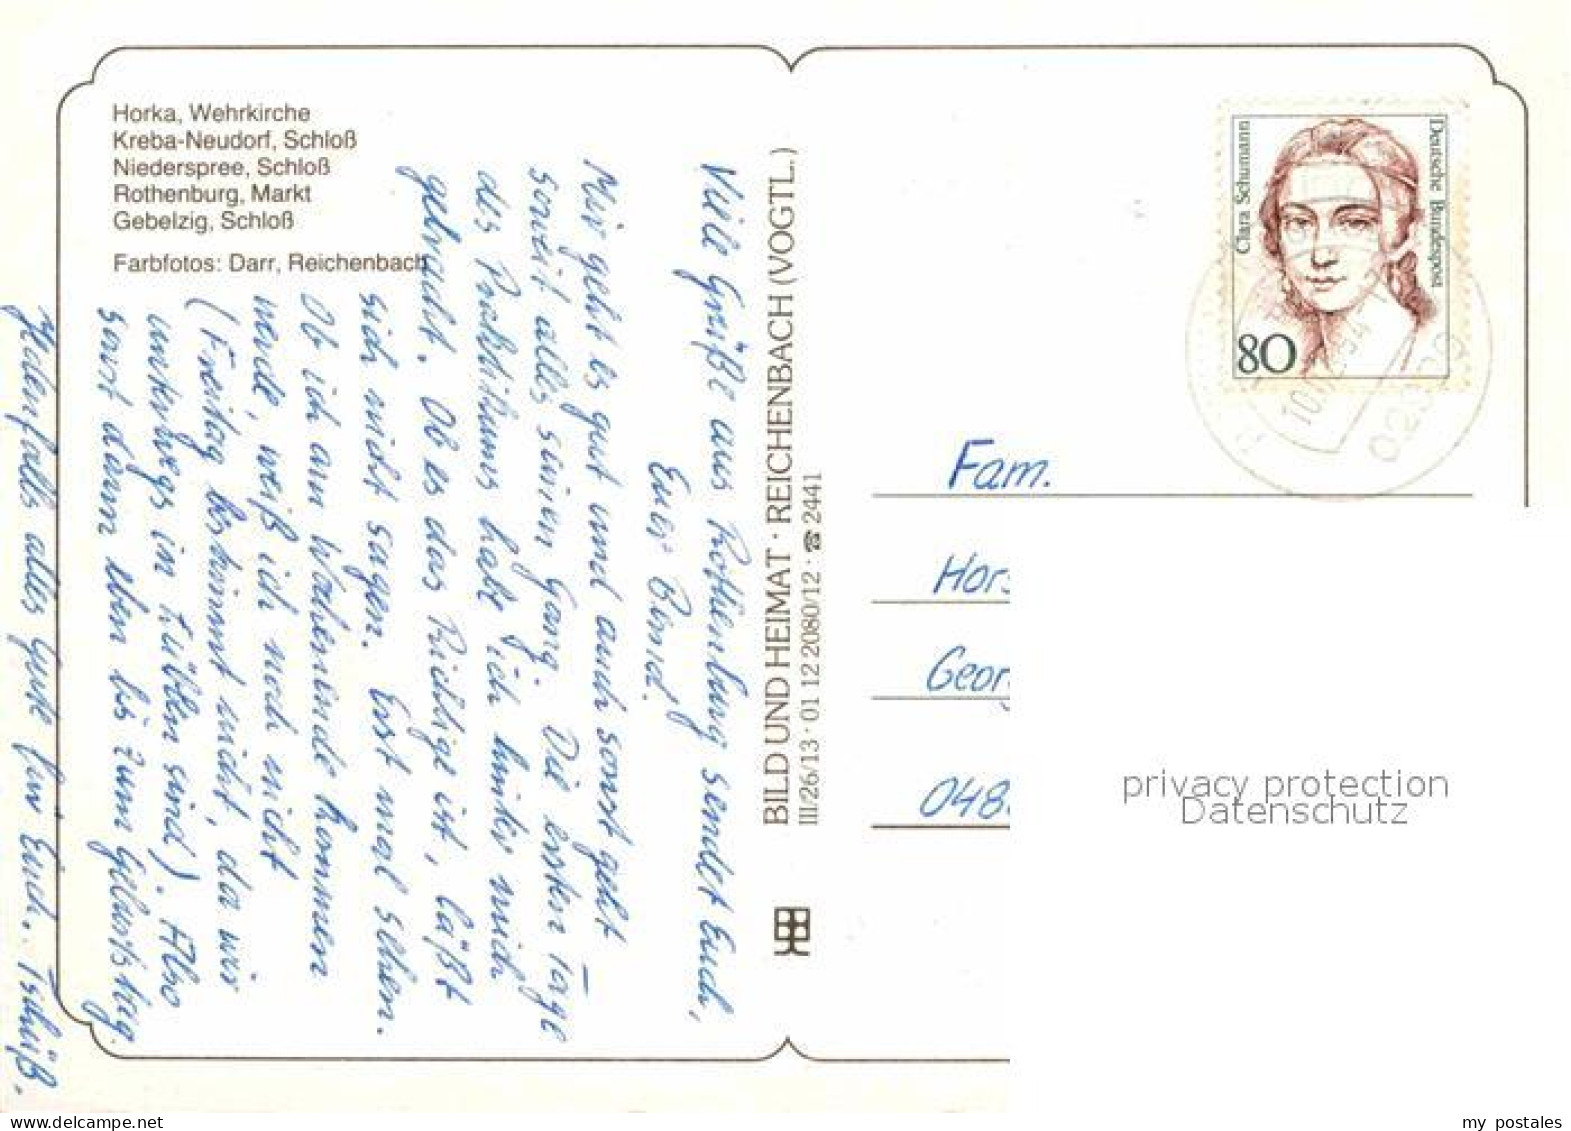 Horka, Wehrkirche
Kreba-Neudorf, Schloß
Niederspree, Schloß
Rothenburg, Markt
Gebelzig, Schloß
Farbfotos: Darr, Reichenbach
Viele Grüße aus Rothenburg sendet Euch,
Euer Bernd.
Mir geht es gut und auch sonst geht
soweit alles seinen Gang. Die ersten Tage
des Praktikums habe ich hinter mich
gebracht. Ob es das Richtige ist, läßt
sich nicht sagen. Erst mal sehen.
Ob ich am Wochenende kommen
werde, weiß ich noch nicht
(Freitag bestimmt nicht, da wir
unterwegs in sind). Also
sonst dann eben bis zum Geburtstag.
Jedenfalls alles Gute für Euch. Tschüß.
BILD UND HEIMAT · REICHENBACH (VOGTL.)
III/26/13 · 01 12 2080/12 · ☎ 2441
Clara Schumann
Deutsche Bundespost
80
Fam.
Hors
Geor
048
privacy protection
Datenschutz
my postales